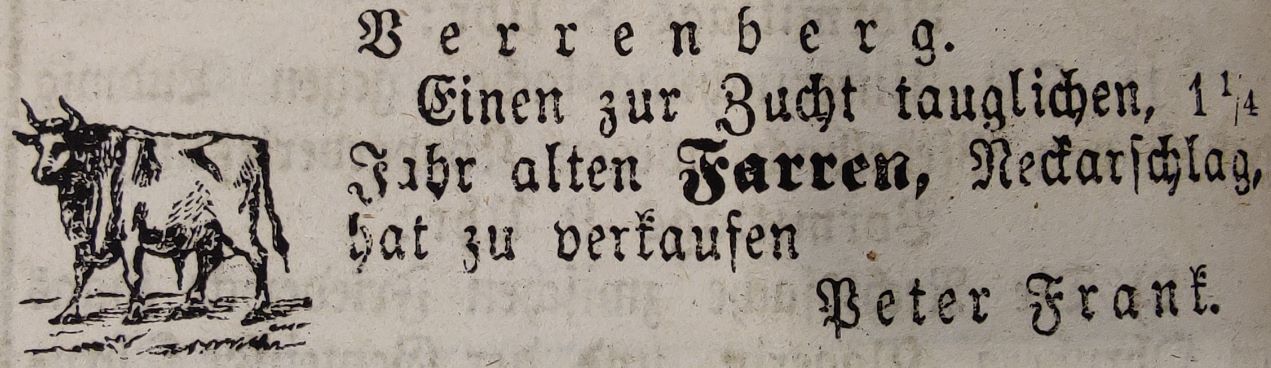 Verrenberg.
Einen zur Zucht tauglichen, 1 1/4
Jahr alten Farren, Neckarschlag,
hat zu verkaufen
Peter Frank.